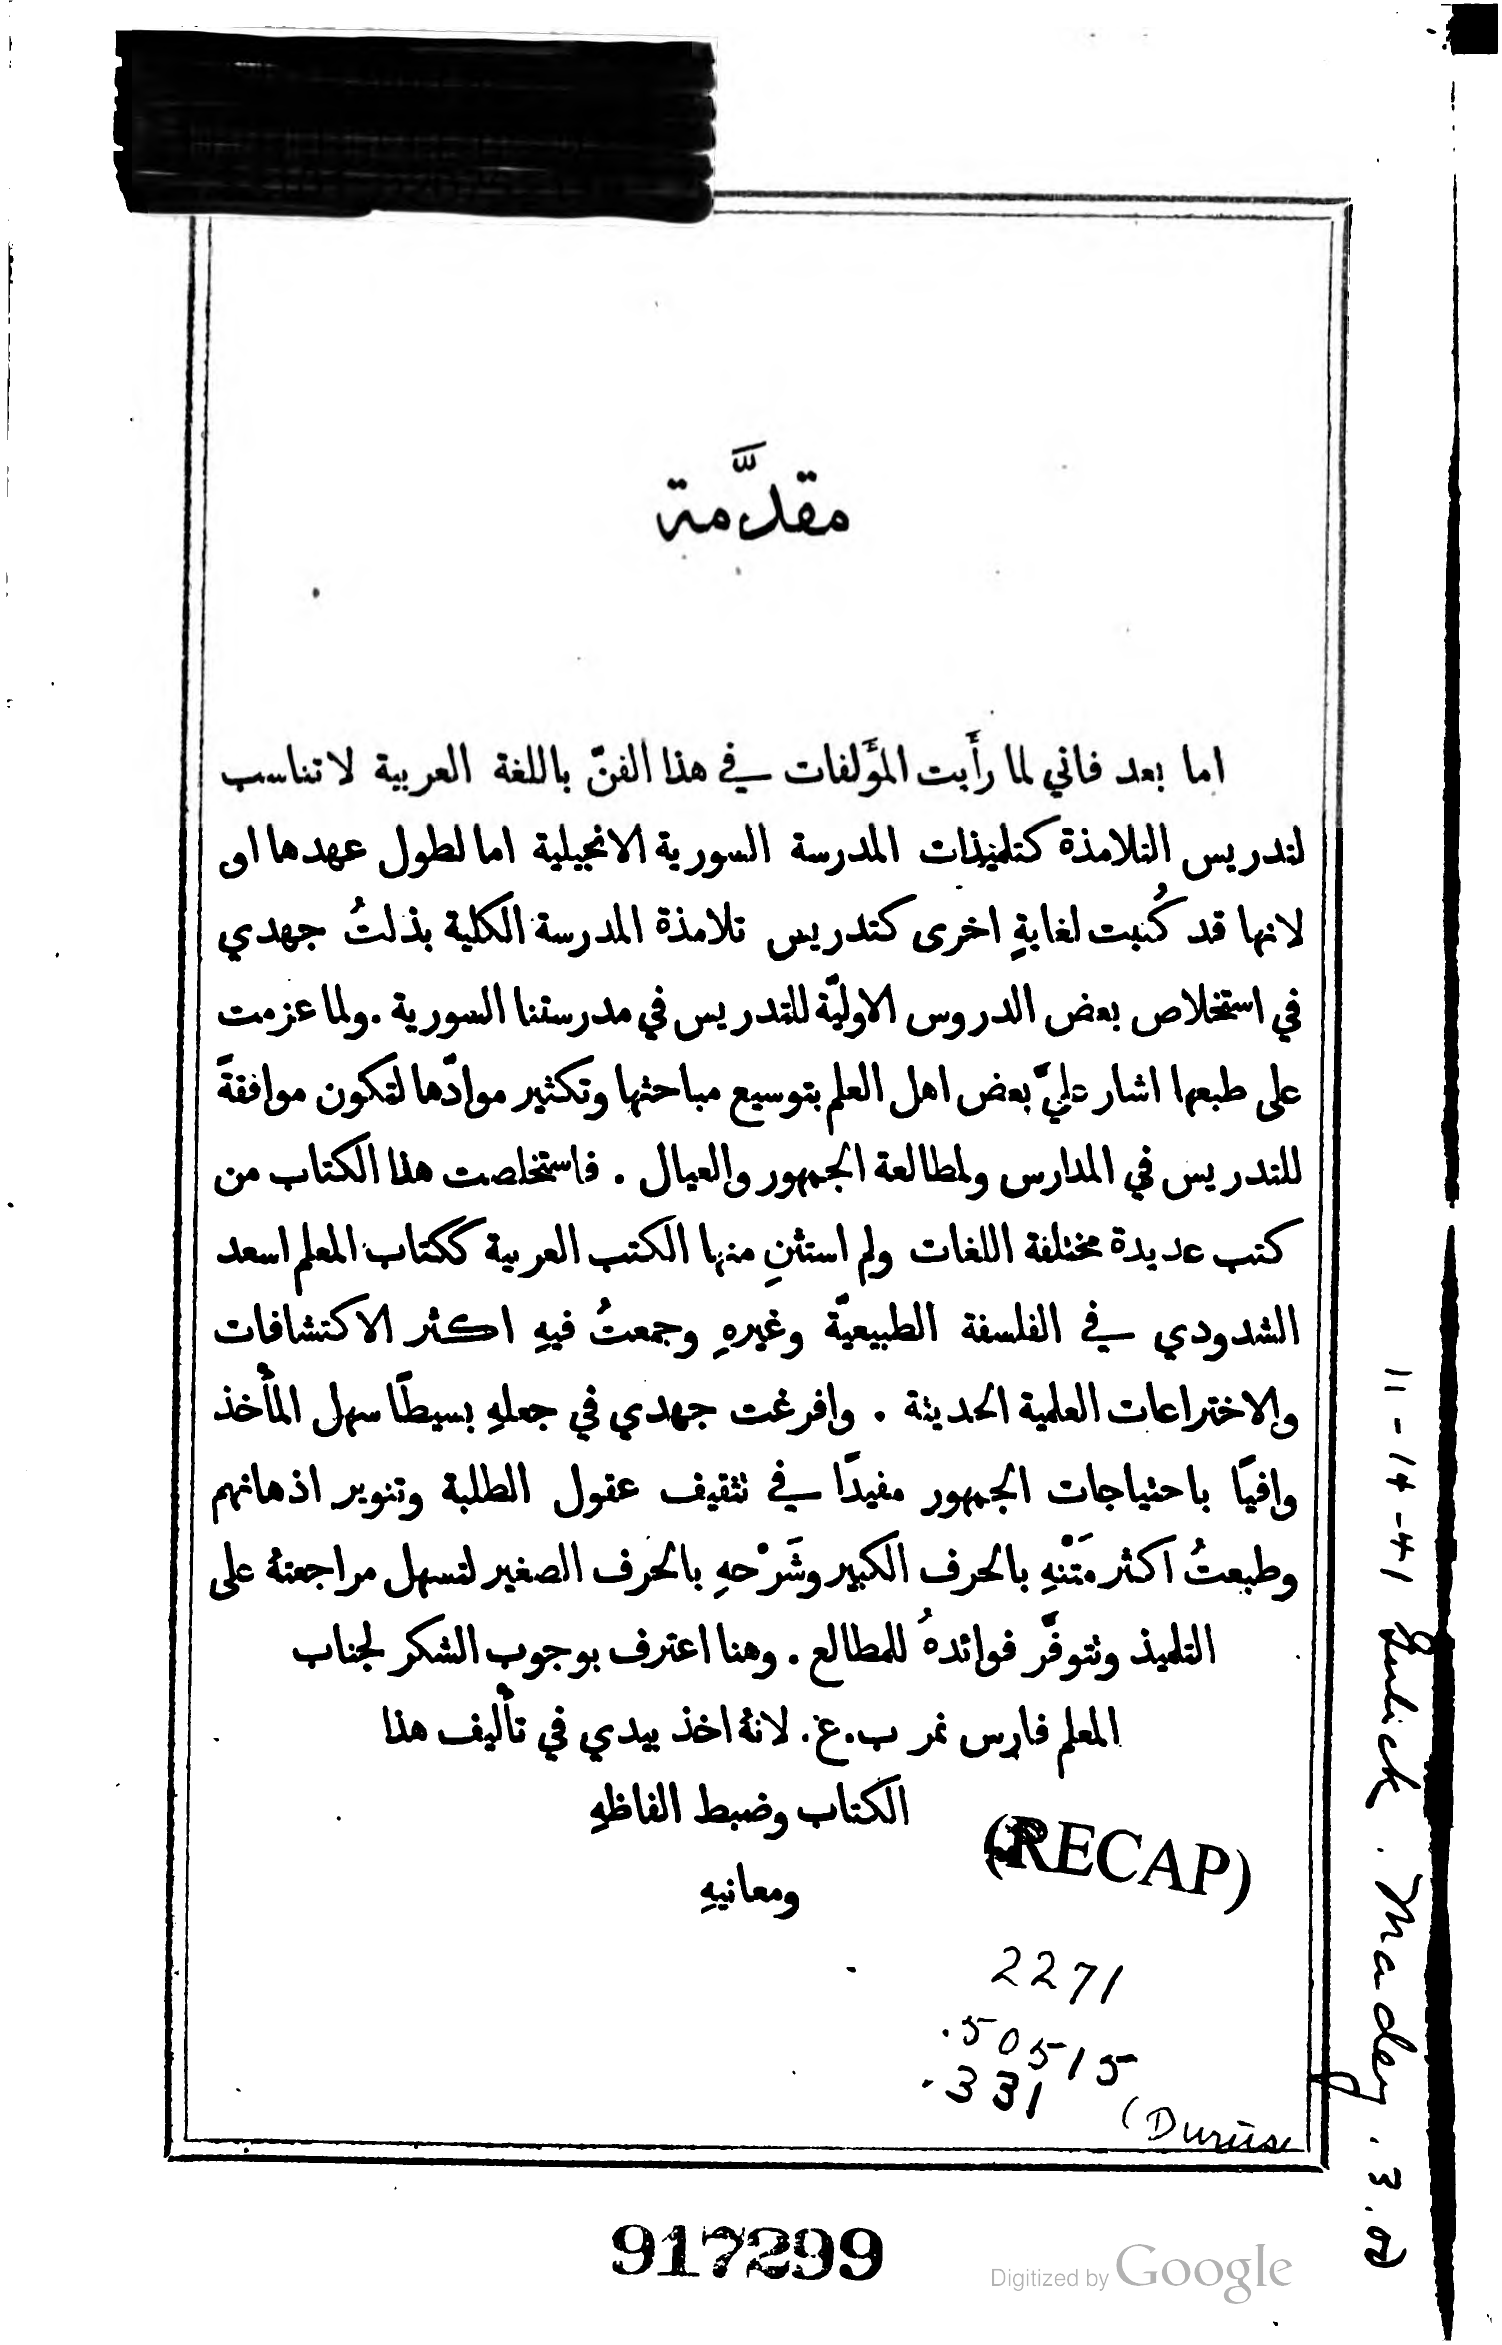 مقدَّمة
اما بعد فاني لما رأَيت المؤَلفات في هذا الفنّ باللغة العربية لا تناسب
لتدريس التلامذة كتلميذات المدرسة السورية الانجيلية اما لطول عهدها او
لانها قد كُتبت لغايةٍ اخرى كتدريس تلامذة المدرسة الكلية بذلتُ جهدي
في استخلاص بعض الدروس الاوليَّة للتدريس في مدرستنا السورية . ولما عزمت
على طبعها اشار عليَّ بعض اهل العلم بتوسيع مباحثها وتكثير موادّها لتكون موافقةً
للتدريس في المدارس ولمطالعة الجمهور والعيال . فاستخلصت هذا الكتاب من
كتب عديدة مختلفة اللغات ولم استثنِ منها الكتب العربية ككتاب المعلم اسعد
الشدودي في الفلسفة الطبيعيَّة وغيرهِ وجمعتُ فيهِ اكثر الاكتشافات
والاختراعات العلمية الحديثة . وافرغت جهدي في جعلهِ بسيطًا سهل المأْخذ
وافيًا باحتياجات الجمهور مفيدًا في تثقيف عقول الطلبة وتنوير اذهانهم
وطبعتُ اكثر مَتْنهِ بالحرف الكبير وشَرْحهِ بالحرف الصغير لتسهل مراجعتهُ على
التلميذ وتتوفَّر فوائدهُ للمطالع . وهنا اعترف بوجوب الشكر لجناب
المعلم فارس نمر ب.ع. لانهُ اخذ بيدي في تأْليف هذا
الكتاب وضبط الفاظهِ
ومعانيهِ
(RECAP)
2271
.50515
.331
(Durūs)
11-14-41 Gulick. Maday. 3.02
917299
Digitized by Google